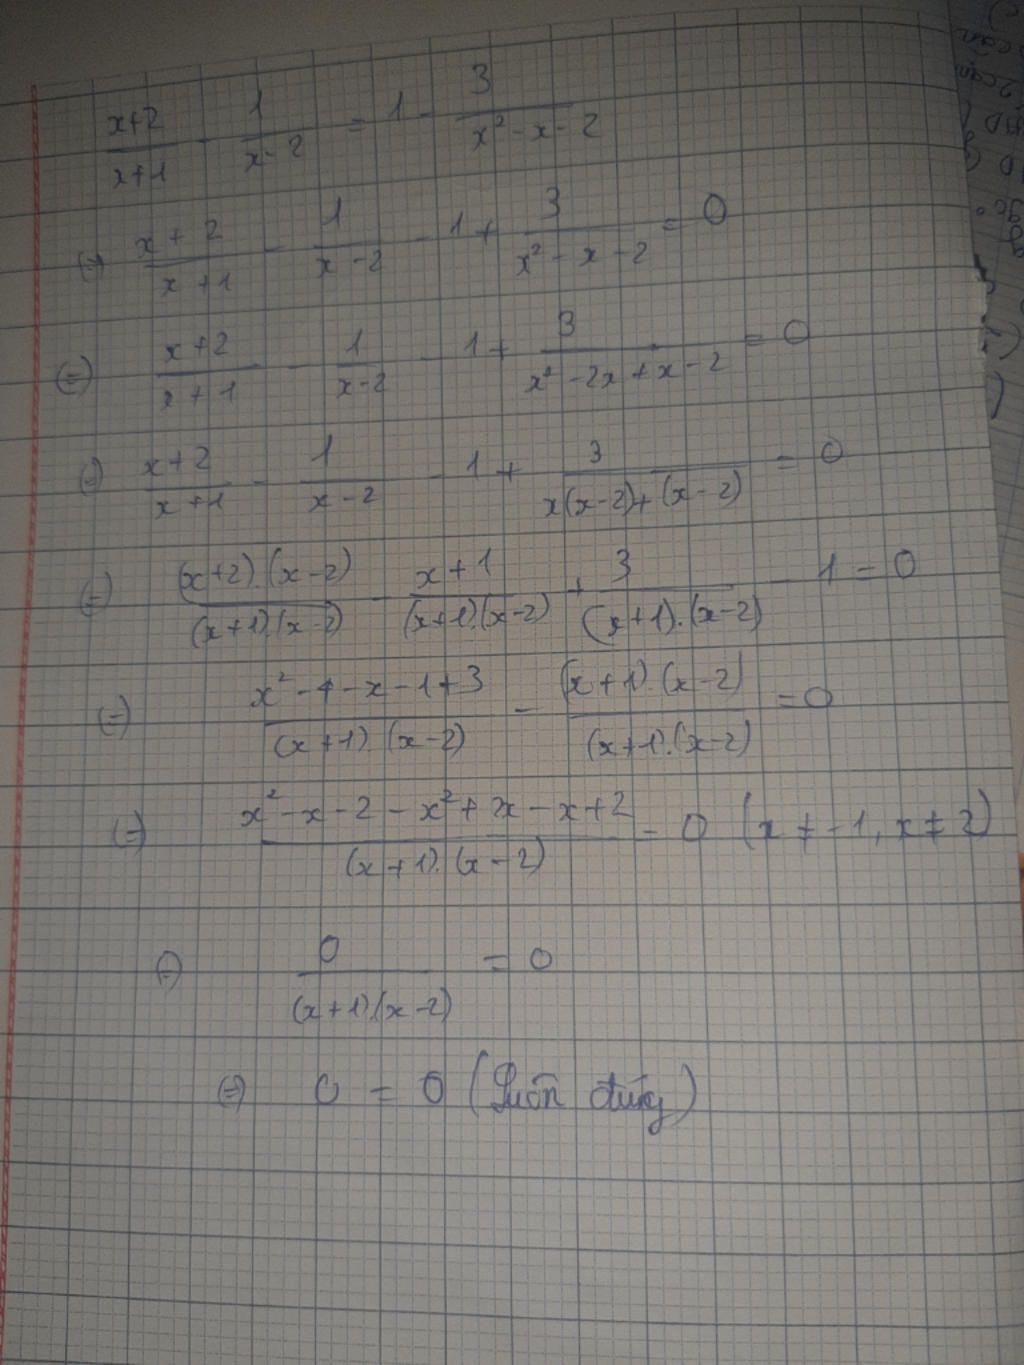 x+2/x+1 - 1/x-2 = 1 - 3/x²-x-2
(=) x+2/x+1 - 1/x-2 - 1 + 3/x²-x-2 = 0
(=) x+2/x+1 - 1/x-2 - 1 + 3/x²-2x+x-2 = 0
(=) x+2/x+1 - 1/x-2 - 1 + 3/x(x-2)+(x-2) = 0
(=) (x+2).(x-2)/(x+1).(x-2) - x+1/(x+1).(x-2) + 3/(x+1).(x-2) - 1 = 0
(=) x²-4-x-1+3/(x+1).(x-2) - (x+1).(x-2)/(x+1).(x-2) = 0
(=) x²-x-2-x²+2x-x+2/(x+1).(x-2) = 0 (x≠-1, x≠2)
(=) 0/(x+1).(x-2) = 0
(=) 0 = 0 (Luôn đúng)